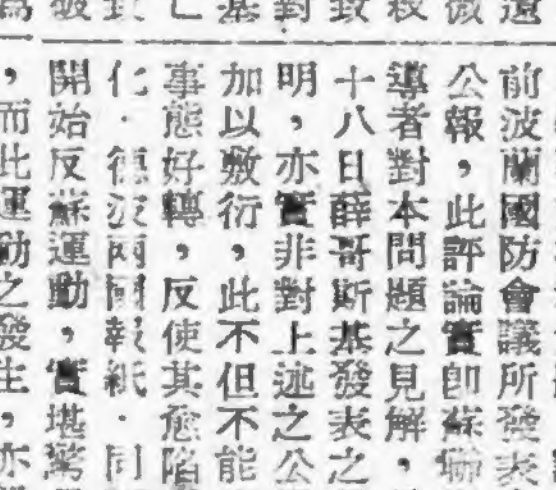 前波蘭國防會議所發表
公報，此評論實卽蘇聯
導者對本問題之見解，
十八日薛哥斯基發表之
明，亦實非對上述之公
加以敷衍，此不但不能
事態好轉，反使其愈陷
化．德波兩國報紙．同
開始反蘇運動，實堪驚
，而此運動之發生，亦